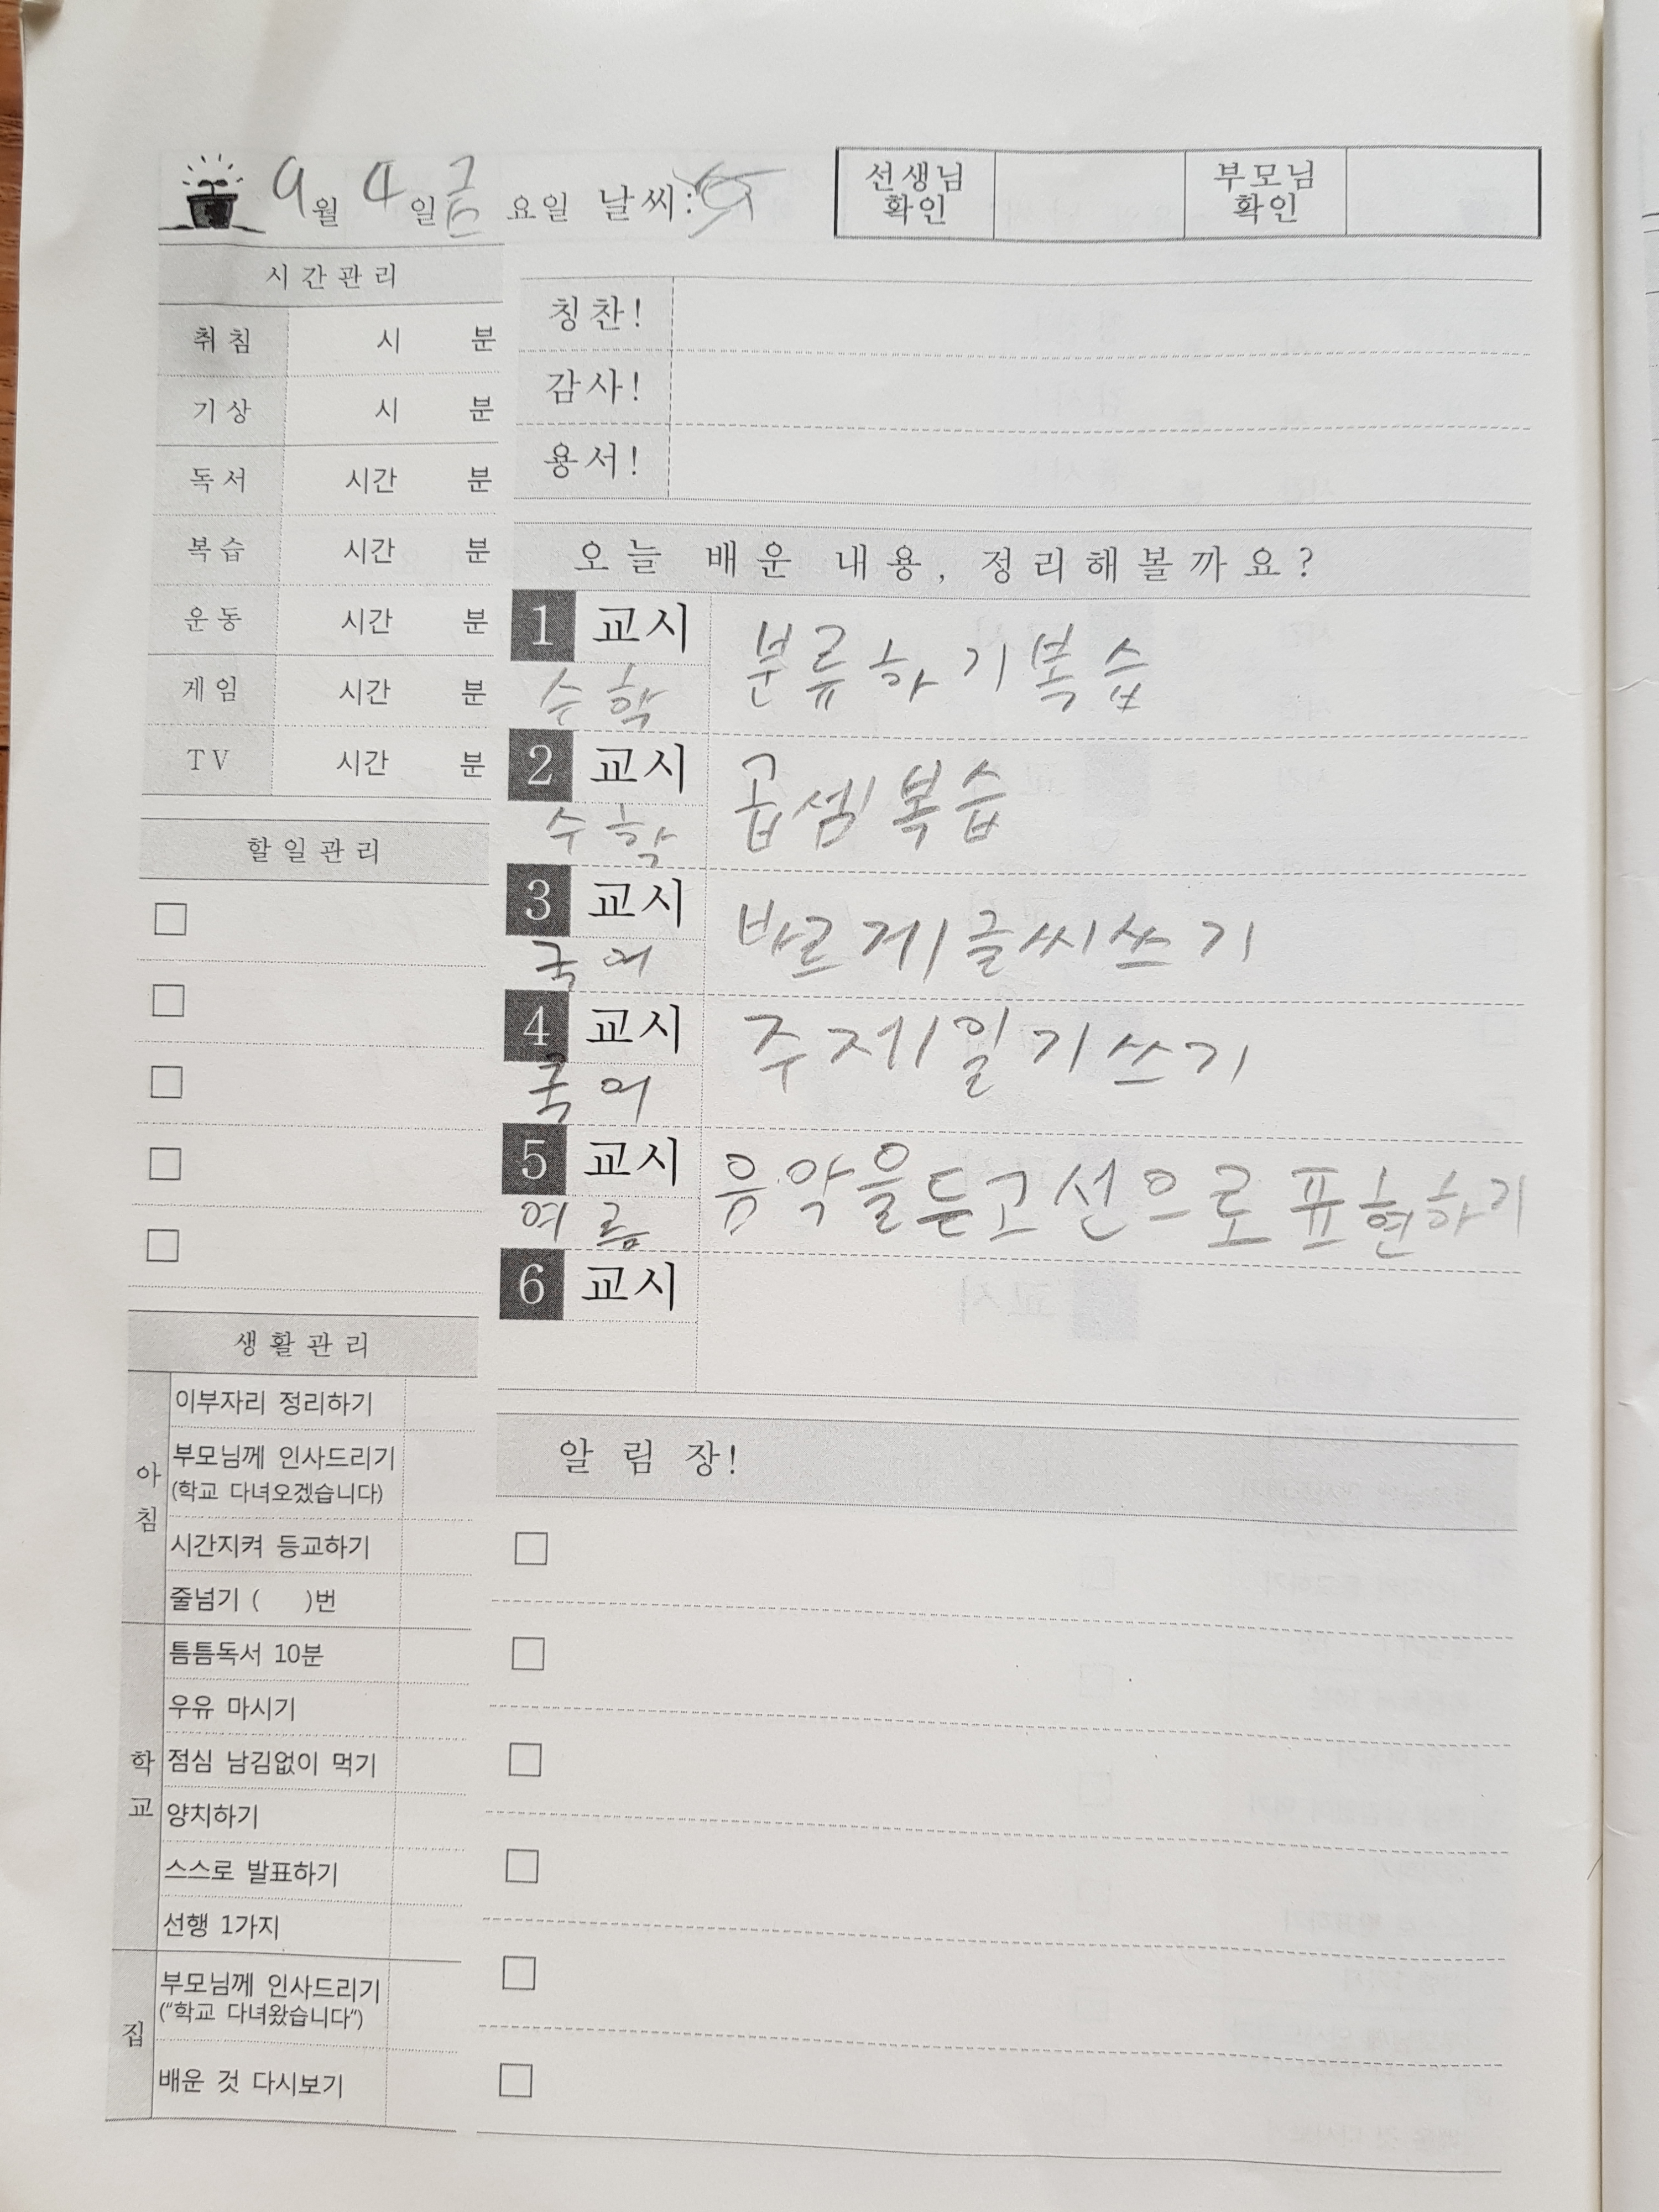 9월 4일 금요일 날씨:
선생님 확인 부모님 확인
시간관리
취침 시 분
기상 시 분
독서 시간 분
복습 시간 분
운동 시간 분
게임 시간 분
TV 시간 분
할일관리
생활관리
아침
이부자리 정리하기
부모님께 인사드리기
(학교 다녀오겠습니다)
시간지켜 등교하기
줄넘기 ( )번
학교
틈틈독서 10분
우유 마시기
점심 남김없이 먹기
양치하기
스스로 발표하기
선행 1가지
집
부모님께 인사드리기
("학교 다녀왔습니다")
배운 것 다시보기
칭찬!
감사!
용서!
오늘 배운 내용, 정리해볼까요?
1 교시
수학 분류하기복습
2 교시
수학 곱셈복습
3 교시
국어 바르게글씨쓰기
4 교시
국어 주제일기쓰기
5 교시
여름 음악을듣고선으로표현하기
6 교시
알림장!